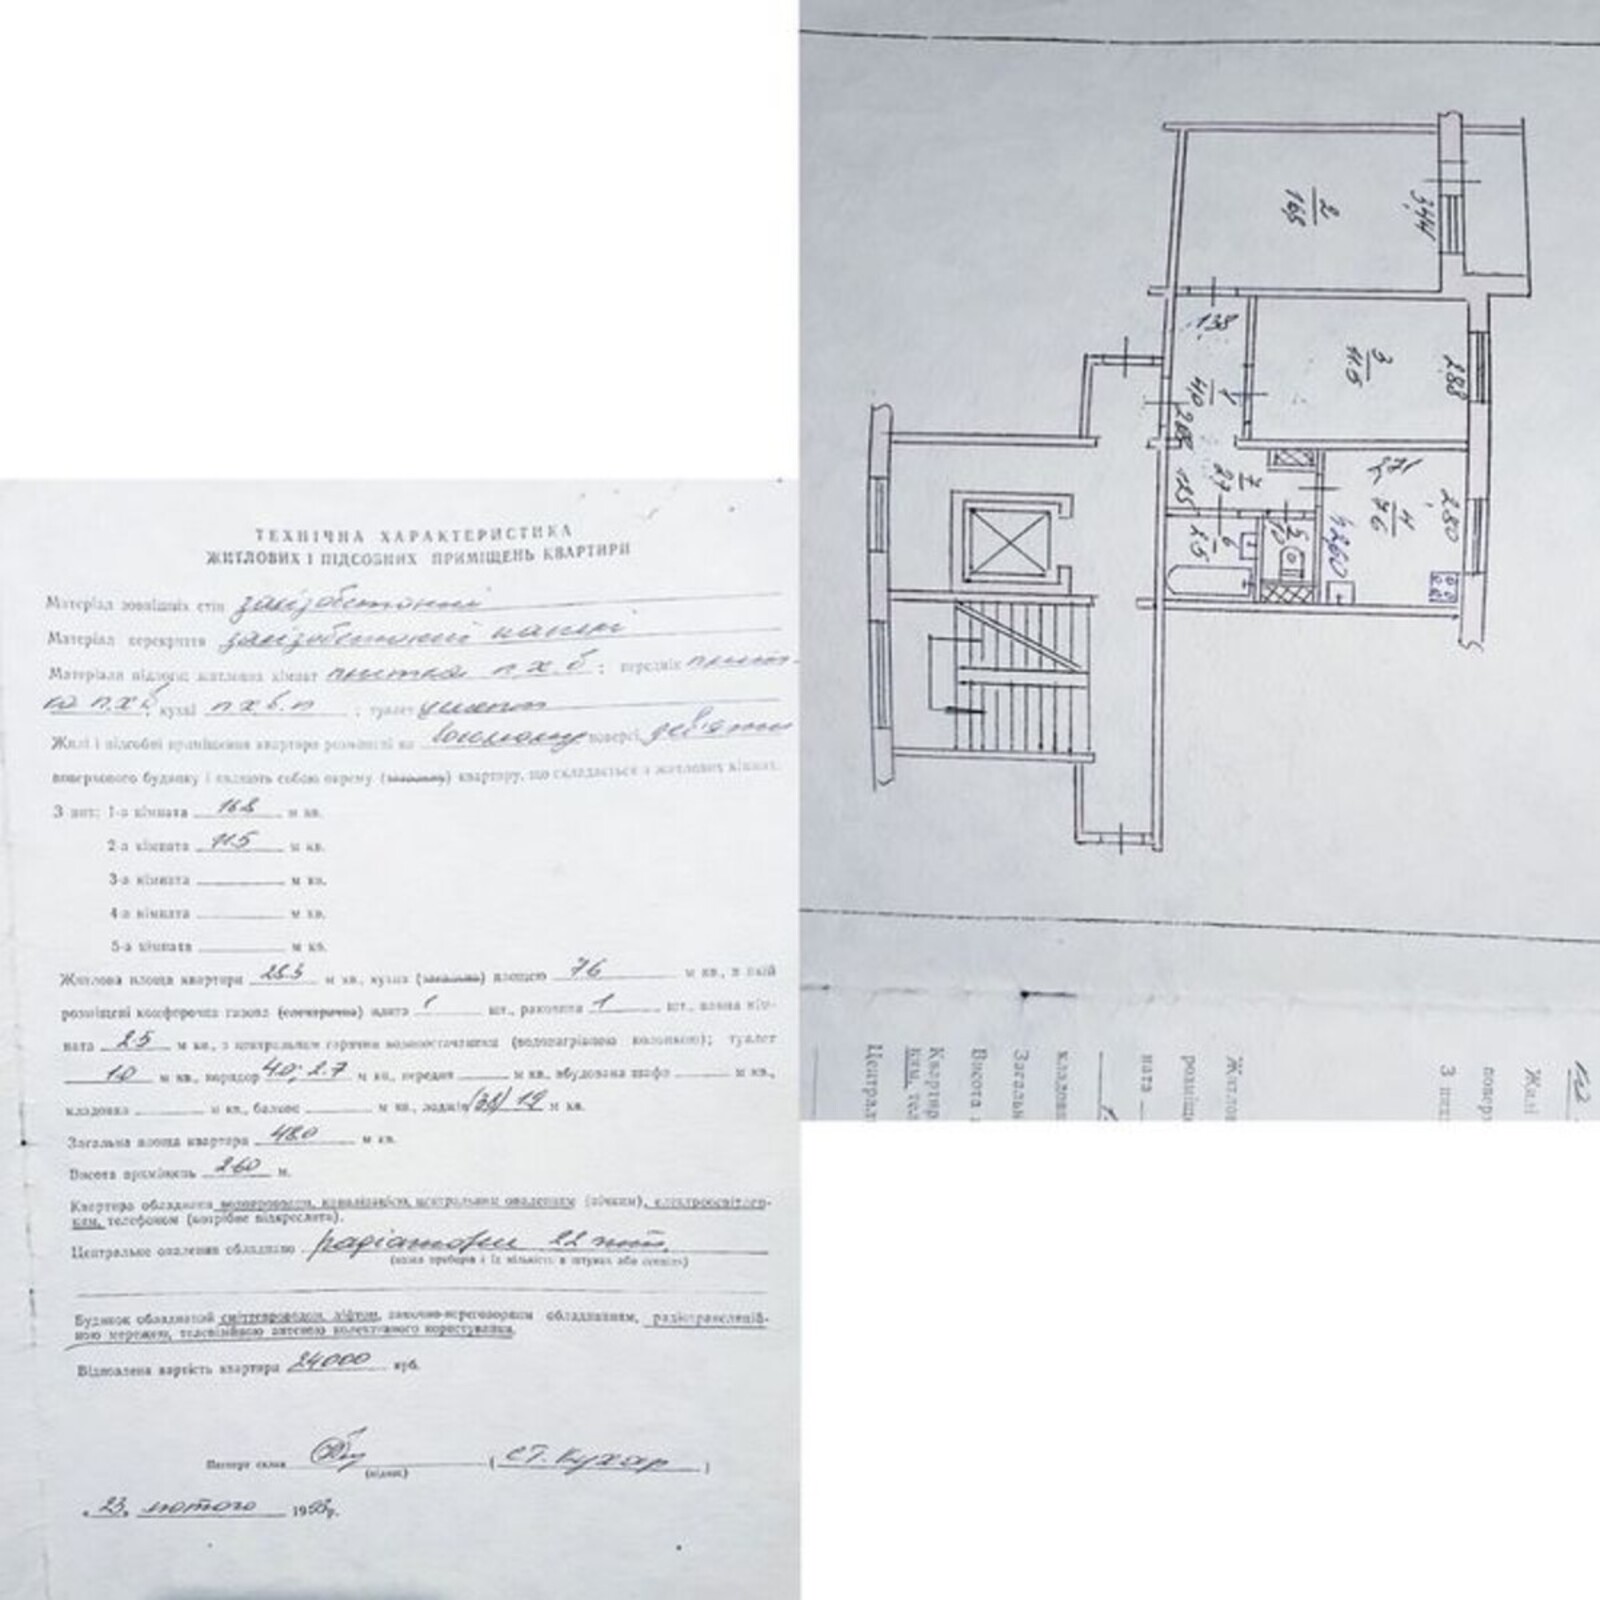 ТЕХНІЧНА ХАРАКТЕРИСТИКА
ЖИТЛОВИХ І ПІДСОБНИХ ПРИМІЩЕНЬ КВАРТИРИ
Матеріал зовнішніх стін залізобетонні
Матеріал перекриття залізобетонні панелі
Матеріали підлоги: житлових кімнат плитка п.х.в.; передпік плит-
ка п.х.в, кухні п.х.в.п; туалет цемент
Жилі і підсобні приміщення квартири розміщені на восьмому поверсі дев'яти
поверхового будинку і являють собою окрему квартиру, що складається з житлових кімнат.
З них: 1-а кімната 16.8 м кв.
2-а кімната 11.5 м кв.
3-а кімната м кв.
4-а кімната м кв.
5-а кімната м кв.
Житлова площа квартири 28.3 м кв., кухня площею 7.6 м кв., в якій
розміщені комфорочна газова (електрична) плита 1 шт., раковина 1 шт., ванна кім-
ната 2.5 м кв., з центральним гарячим водопостачанням (водонагрівною колонкою); туалет
1.0 м кв., коридор 4.0; 2.7 м кв., передпік м кв., вбудована шафа м кв.,
кладовка м кв., балкон м кв., лоджія 1.9 м кв.
Загальна площа квартири 48.0 м кв.
Висота приміщень 2.60 м.
Квартира обладнана водопроводом, каналізацією, центральним опаленням (пічним), електроосвітлен-
ням, телефоном (потрібне підкреслити).
Центральне опалення обладнано радіатори 22 шт.
(назва приборів і їх кількість в штуках або секціях)
Будинок обладнаний сміттєпроводом, ліфтом, замочно-переговорним обладнанням, радіотрансляцій-
ною мережею, телевізійною антеною колективного користування.
Відновлена вартість квартири 24000 крб.
Паспорт склав (Ст. Кухар)
(підпис)
«23» лютого 1993р.
2
16,8
3,44
1,38
3
11.5
2.88
1
4,0
2.88
7
2,7
1.25
4
7.6
2.80
2,71
h 2.60
5
1.0
6
2.5
Жилі
повер
З них
Житлов
розміщ
ната
кладовк
Загальн
Висота
Квартир
ням, тел
Централ